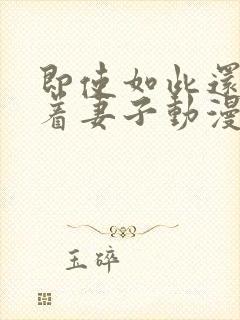 即使如此還
著妻子動漫
玉碎